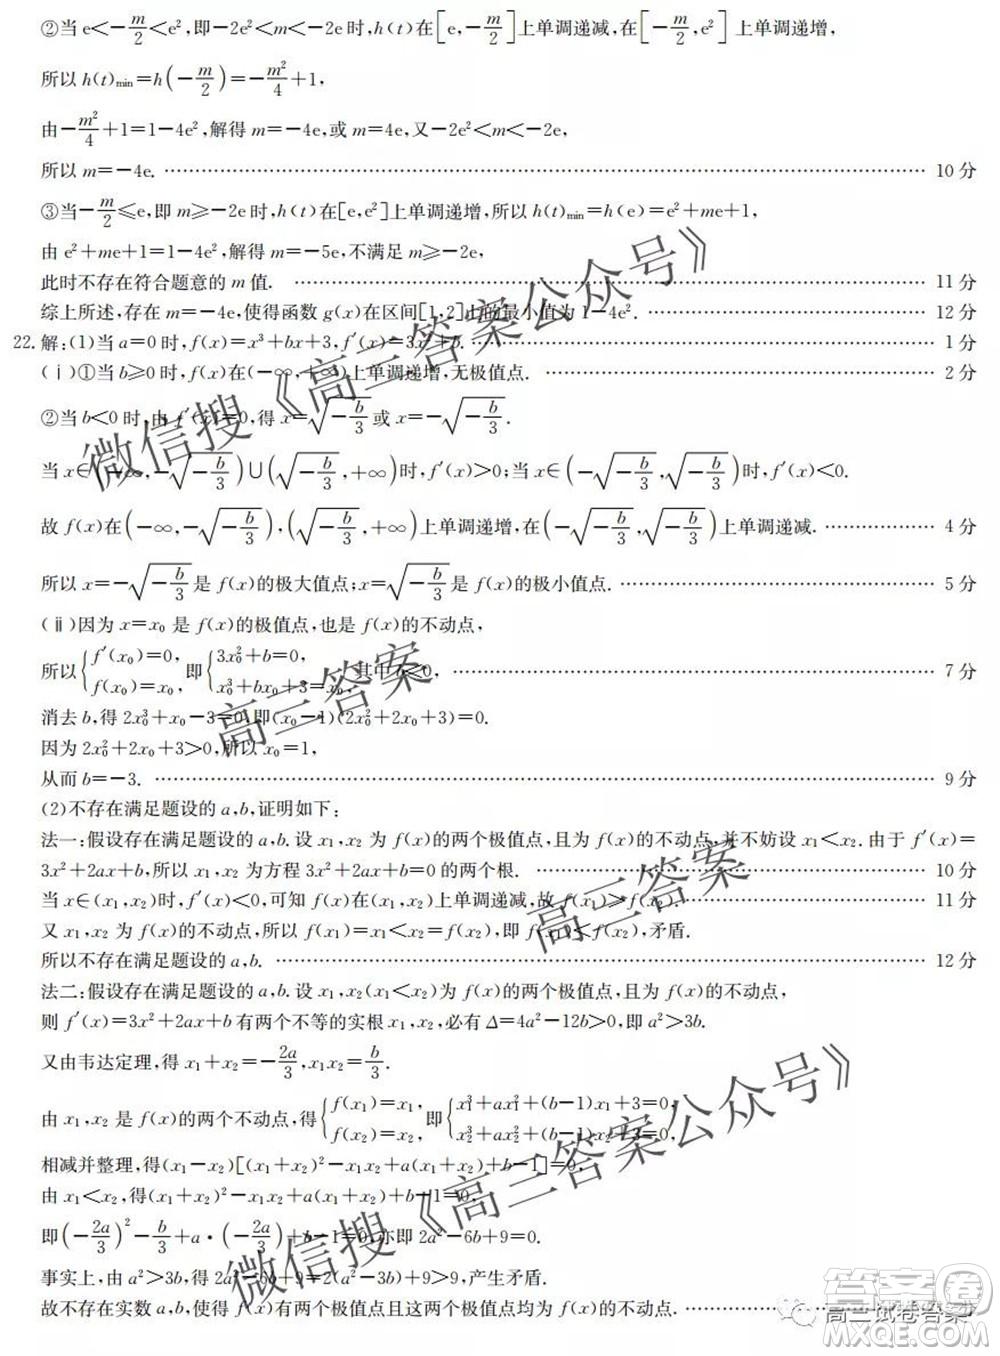 ②当 e<-m/2<e²,即-2e²<m<-2e时,h(t)在[e,-m/2]上单调递减,在[-m/2,e²]上单调递增,
所以 h(t)min=h(-m/2)=-m²/4+1,
由-m²/4+1=1-4e²,解得 m=-4e,或 m=4e,又-2e²<m<-2e,
所以 m=-4e. …… 10 分
③当-m/2≤e,即 m≥-2e 时,h(t)在[e,e²]上单调递增,所以 h(t)min=h(e)=e²+me+1,
由 e²+me+1=1-4e²,解得 m=-5e,不满足 m≥-2e,
此时不存在符合题意的 m 值. …… 11 分
综上所述,存在 m=-4e,使得函数 g(x)在区间[1,2]上的最小值为 1-4e². …… 12 分
22.解:(1)当 a=0 时,f(x)=x³+bx+3,f′(x)=3x²+b. …… 1 分
(ⅰ)①当 b≥0 时,f(x)在(-∞,+∞)上单调递增,无极值点. …… 2 分
②当 b<0 时,由 f′(x)=0,得 x=√(-b/3)或 x=-√(-b/3).
当 x∈(-∞,-√(-b/3))∪(√(-b/3),+∞)时,f′(x)>0;当 x∈(-√(-b/3),√(-b/3))时,f′(x)<0.
故 f(x)在(-∞,-√(-b/3)),(√(-b/3),+∞)上单调递增,在(-√(-b/3),√(-b/3))上单调递减. …… 4 分
所以 x=-√(-b/3)是 f(x)的极大值点;x=√(-b/3)是 f(x)的极小值点. …… 5 分
(ⅱ)因为 x=x₀ 是 f(x)的极值点,也是 f(x)的不动点,
所以{f′(x₀)=0, f(x₀)=x₀,即{3x₀²+b=0, x₀³+bx₀+3=x₀,其中 b<0, …… 7 分
消去 b,得 2x₀³+x₀-3=0,即(x₀-1)(2x₀²+2x₀+3)=0.
因为 2x₀²+2x₀+3>0,所以 x₀=1,
从而 b=-3. …… 9 分
(2)不存在满足题设的 a,b,证明如下:
法一:假设存在满足题设的 a,b.设 x₁,x₂ 为 f(x)的两个极值点,且为 f(x)的不动点,并不妨设 x₁<x₂.由于 f′(x)=
3x²+2ax+b,所以 x₁,x₂ 为方程 3x²+2ax+b=0 的两个根. …… 10 分
当 x∈(x₁,x₂)时,f′(x)<0,可知 f(x)在(x₁,x₂)上单调递减,故 f(x₁)>f(x₂). …… 11 分
又 x₁,x₂ 为 f(x)的不动点,所以 f(x₁)=x₁<x₂=f(x₂),即 f(x₁)<f(x₂),矛盾.
所以不存在满足题设的 a,b. …… 12 分
法二:假设存在满足题设的 a,b.设 x₁,x₂(x₁<x₂)为 f(x)的两个极值点,且为 f(x)的不动点,
则 f′(x)=3x²+2ax+b 有两个不等的实根 x₁,x₂,必有 Δ=4a²-12b>0,即 a²>3b.
又由韦达定理,得 x₁+x₂=-2a/3,x₁x₂=b/3.
由 x₁,x₂ 是 f(x)的两个不动点,得{f(x₁)=x₁, f(x₂)=x₂,即{x₁³+ax₁²+(b-1)x₁+3=0, x₂³+ax₂²+(b-1)x₂+3=0,
相减并整理,得(x₁-x₂)[(x₁+x₂)²-x₁x₂+a(x₁+x₂)+b-1]=0,
由 x₁<x₂,得(x₁+x₂)²-x₁x₂+a(x₁+x₂)+b-1=0,
即(-2a/3)²-b/3+a·(-2a/3)+b-1=0,亦即 2a²-6b+9=0.
事实上,由 a²>3b,得 2a²-6b+9=2(a²-3b)+9>9,产生矛盾.
故不存在实数 a,b,使得 f(x)有两个极值点且这两个极值点均为 f(x)的不动点. ……
微信搜《高三答案公众号》
高三答案
高三答案
微信搜《高三答案公众号》
高三试卷答案
答案圈
MXQE.COM